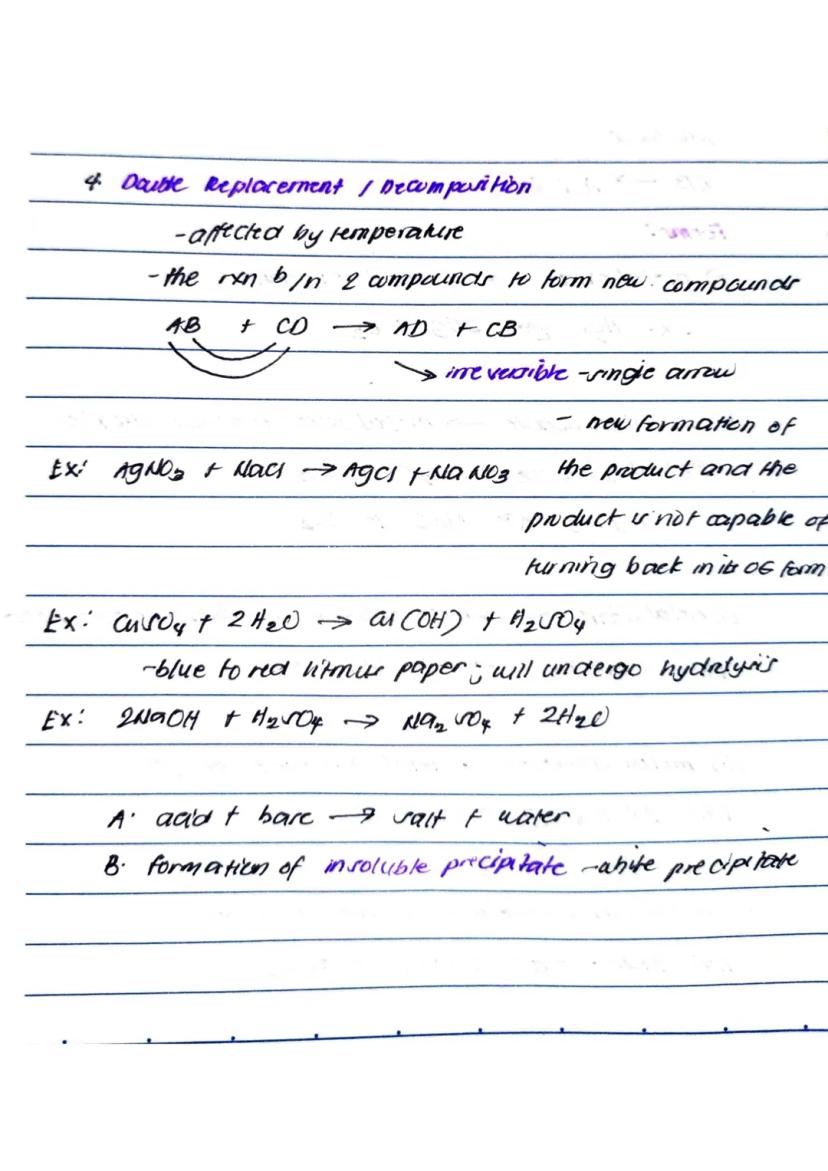 4. Double Replacement / Decomposition
-affected by temperature
-the rxn b/n 2 compounds to form new compounds
AB + CD → AD + CB
↘ irreversible -single arrow
- new formation of
Ex: AgNO₃ + NaCl → AgCl + NaNO₃ the product and the
product is not capable of
turning back in its OG form
Ex: CuSO₄ + 2H₂O → Cu(OH) + H₂SO₄
-blue to red litmus paper; will undergo hydrolysis
Ex: 2NaOH + H₂SO₄ → Na₂SO₄ + 2H₂O
A. acid + base → salt + water
B. formation of insoluble precipitate -white precipitate